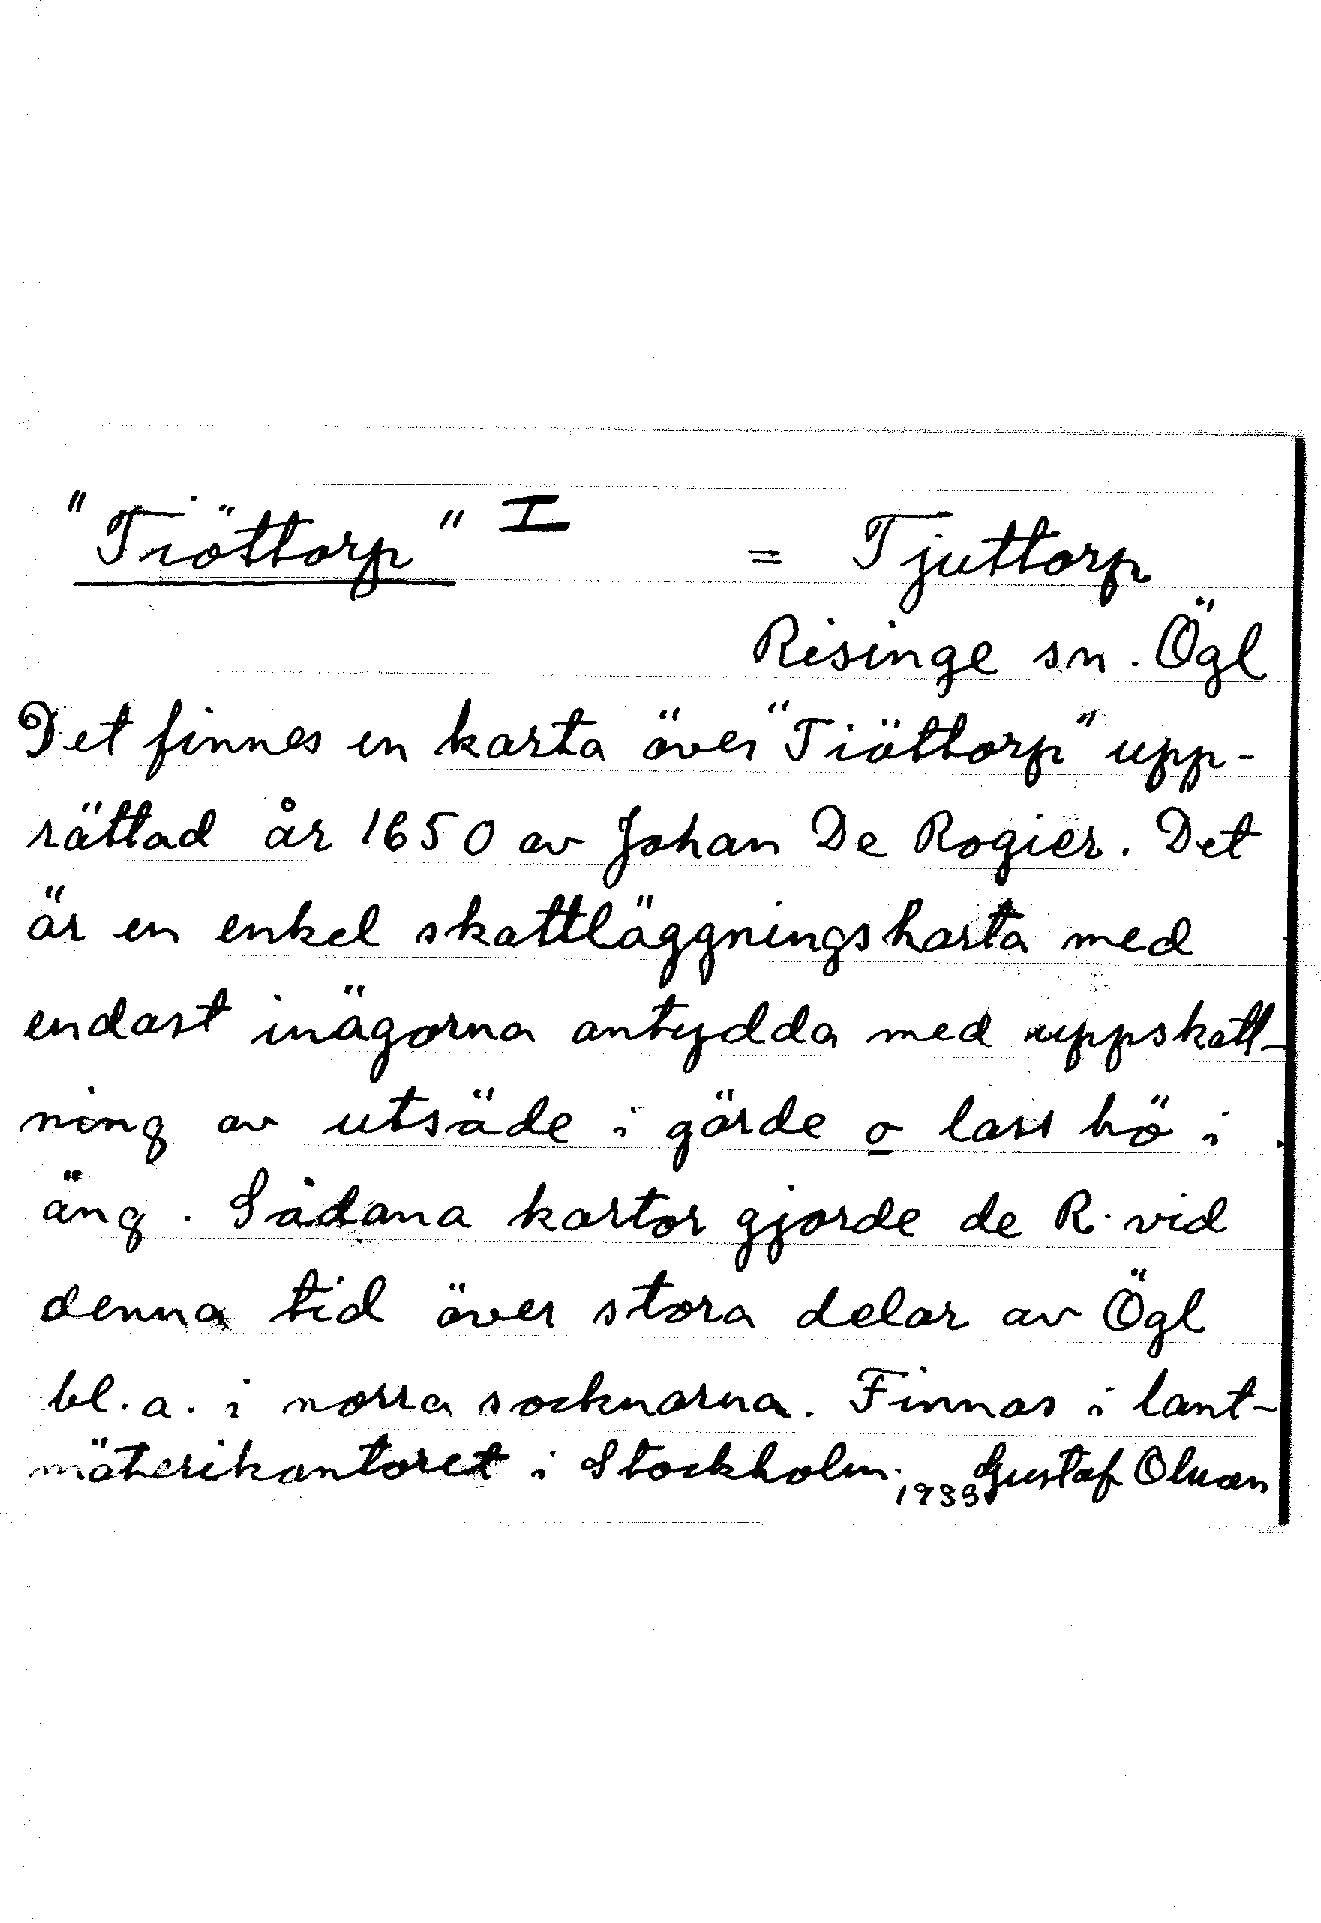 "Tiöttorp" I = Tjuttorp
Risinge sn. Ögl
Det finnes en karta över "Tiöttorp" upp-
rättad år 1650 av Johan De Rogier. Det
är en enkel skattläggningskarta med
endast inägorna antydda med uppskatt-
ning av utsäde i gärde o lass hö i
äng. Sådana kartor gjorde de R. vid
denna tid över stora delar av Ögl
bl.a. i norra socknarna. Finnas i lant-
mäterikantoret i Stockholm.
1933 Gustaf Olsson